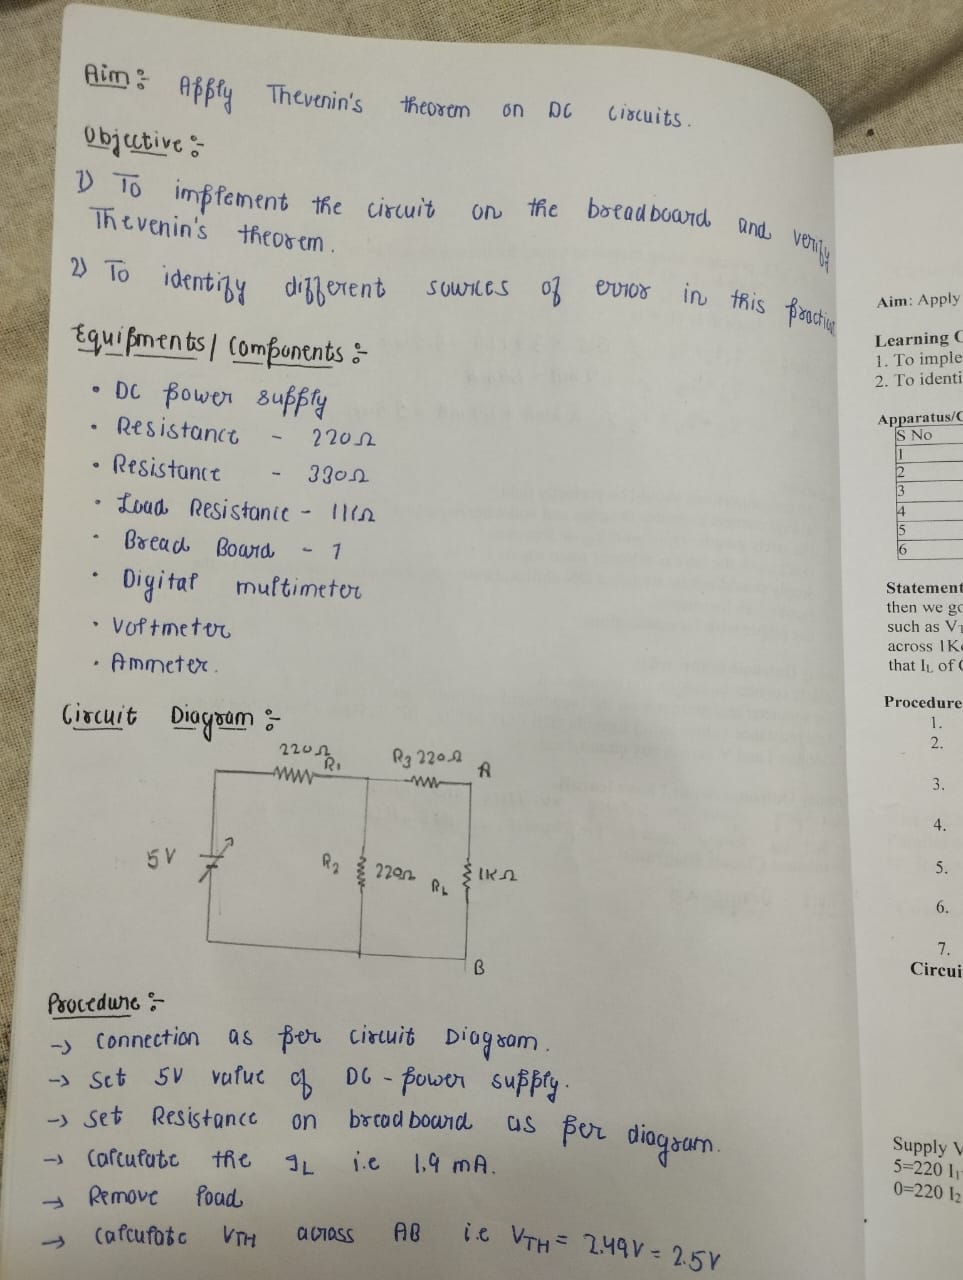 Aim :- Apply Thevenin's theorem on DC Circuits.
Objective :-
1) To implement the circuit on the breadboard and verify
Thevenin's theorem.
2) To identify different sources of error in this practical
Equipments / Components :-
• DC power supply
• Resistance - 220Ω
• Resistance - 330Ω
• Load Resistance - 1KΩ
• Bread Board - 1
• Digital multimeter
• Voltmeter
• Ammeter.
Circuit Diagram :-
220Ω
R1
R3 220Ω
A
5V
R2
220Ω
RL
1KΩ
B
Procedure :-
→ Connection as per circuit Diagram.
→ Set 5V value of DC - power supply.
→ Set Resistance on breadboard as per diagram.
→ Calculate the IL i.e 1.9 mA.
→ Remove load
→ Calculate VTH across AB i.e VTH = 2.49V = 2.5V
Aim: Apply
Learning
1. To imple
2. To identi
Apparatus/C
S No
1
2
3
4
5
6
Statement
then we go
such as VT
across 1K
that IL of
Procedure
1.
2.
3.
4.
5.
6.
7.
Circui
Supply V
5=220 I1
0=220 I2